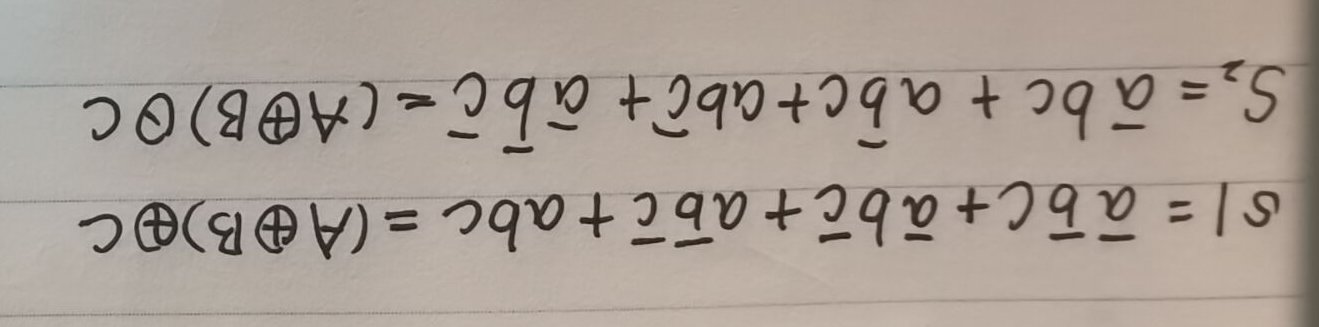 S1 = a̅b̅c + a̅bc̅ + ab̅c̅ + abc = (A⊕B)⊕C
S₂ = a̅bc + ab̅c + abc̅ + a̅b̅c̅ = (A⊕B)⊙C